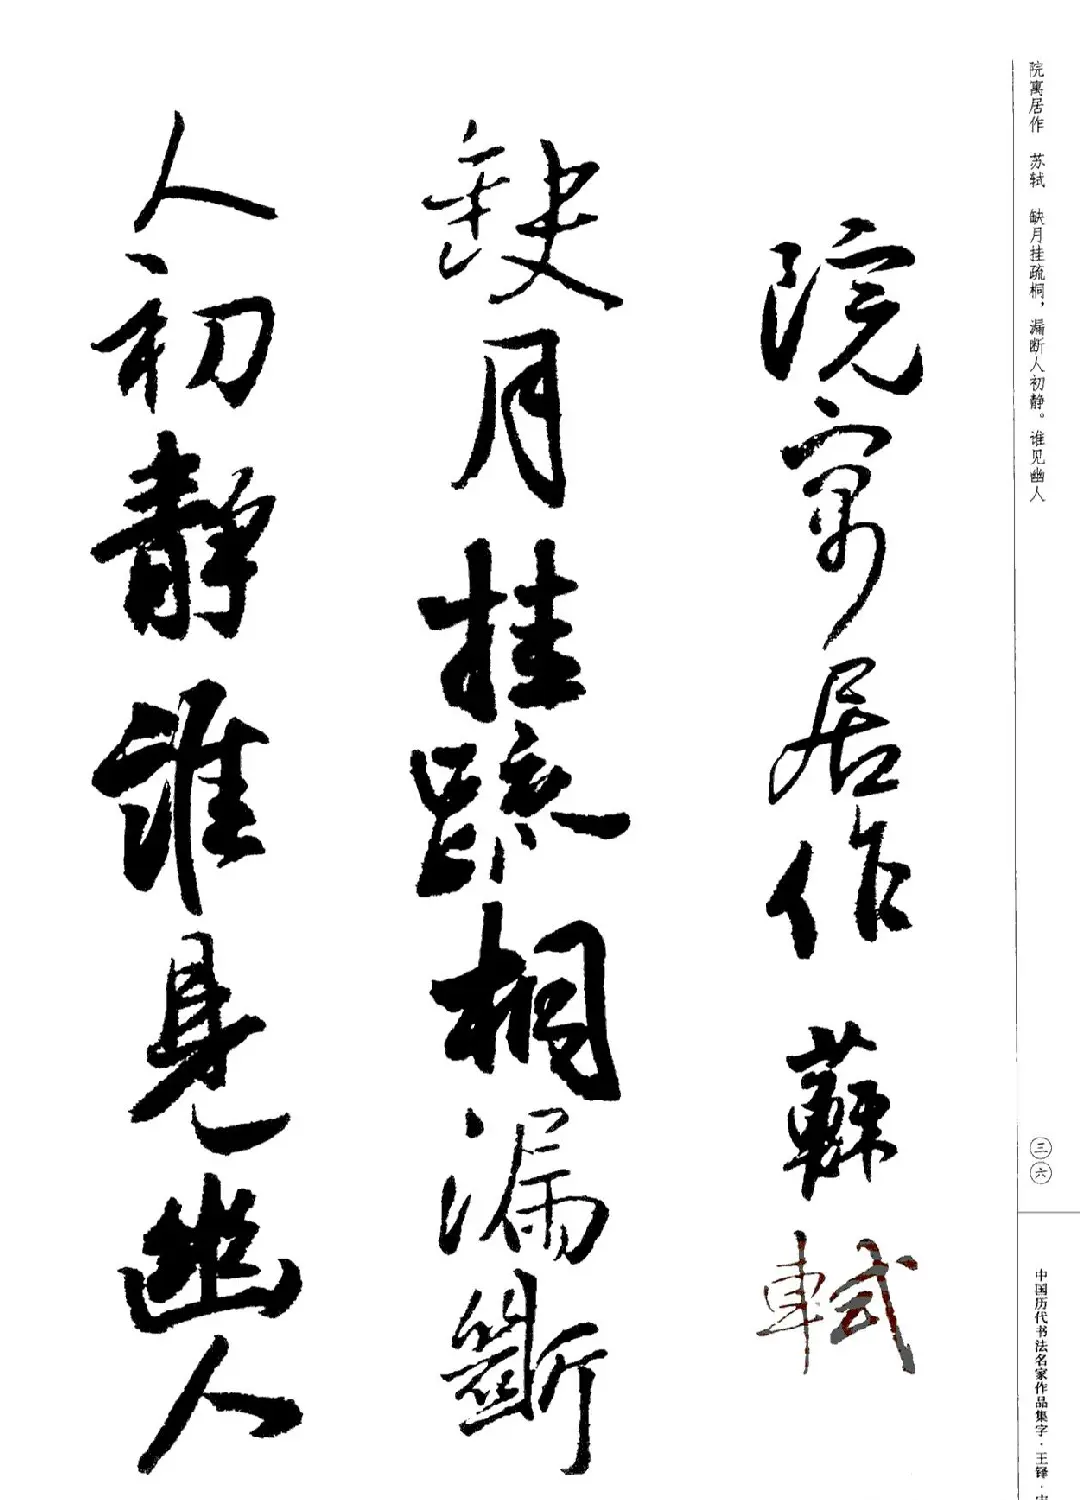 院寓居作 苏轼 缺月挂疏桐，漏断人初静。谁见幽人
院寓居作蘇軾
缺月挂疏桐漏斷
人初靜誰見幽人
三六
中国历代书法名家作品集字·王铎·